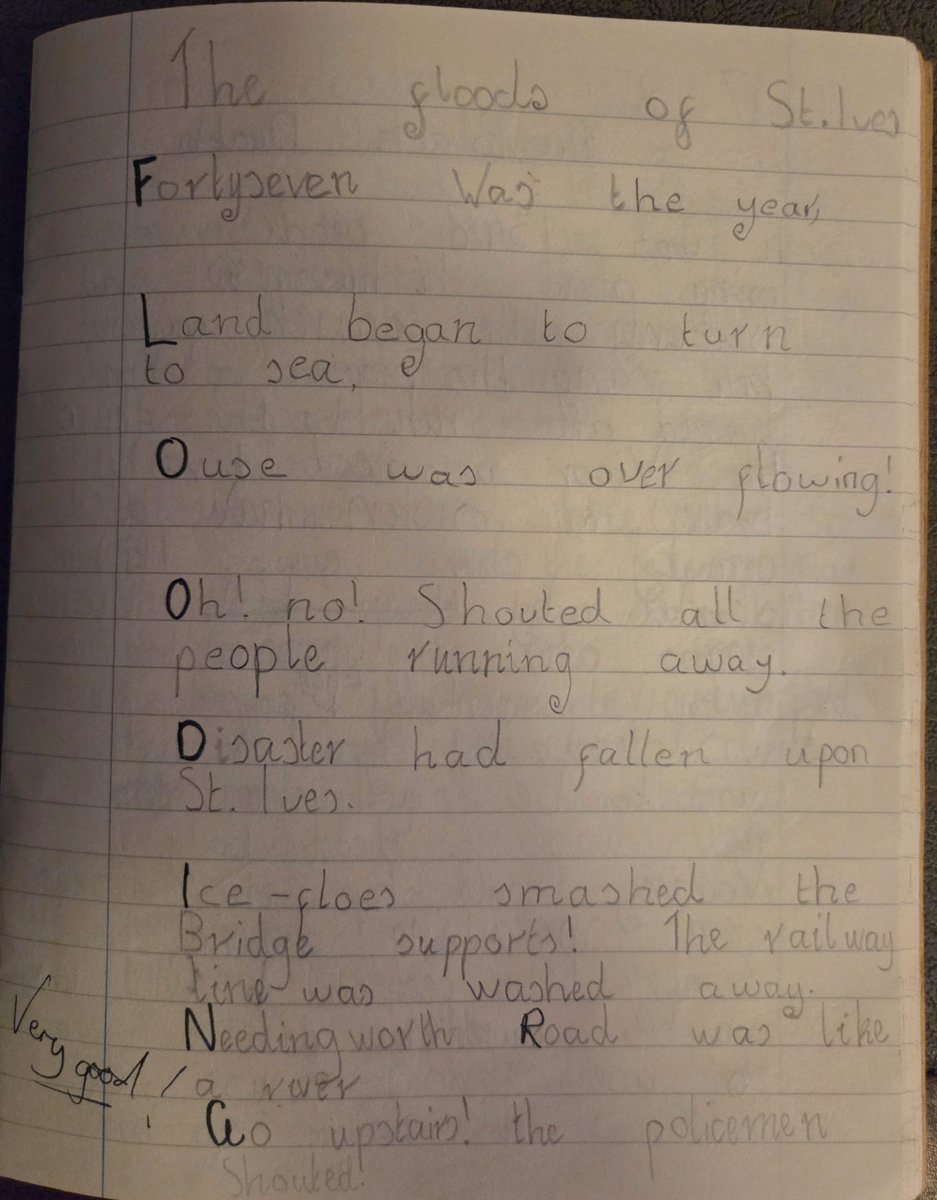 The floods of St. Ives
Fortyseven Was the year,
Land began to turn
to sea,
Ouse was over flowing!
Oh! no! Shouted all the
people running away.
Disaster had fallen upon
St. Ives.
Ice-floes smashed the
Bridge supports! The railway
line was washed away.
Needingworth Road was like
a river
Very good!
Go upstairs! the policemen
Shouted!